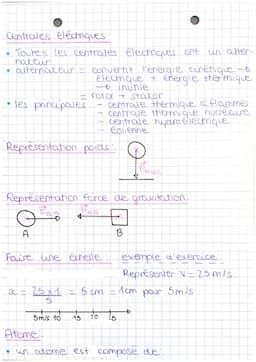 Centrales électriques
• Toutes les centrales électriques ont un alter-
nateur.
• alternateur = convertit l'énergie cinétique →
électrique + énergie thermique
→ inutile
= rotor + stator
• les principales - centrale thermique à flammes
- centrale thermique nucléaire
- centrale hydroélectrique
- Éolienne
Représentation poids:
Représentation force de gravitation:
A B
Faire une échelle: exemple d'exercice
Représenter V = 25 m/s
x = 25 x 1 = 5 cm = 1cm pour 5m/s
5
5m/s 10 15 20 25
Atome:
• un atome est composé de: